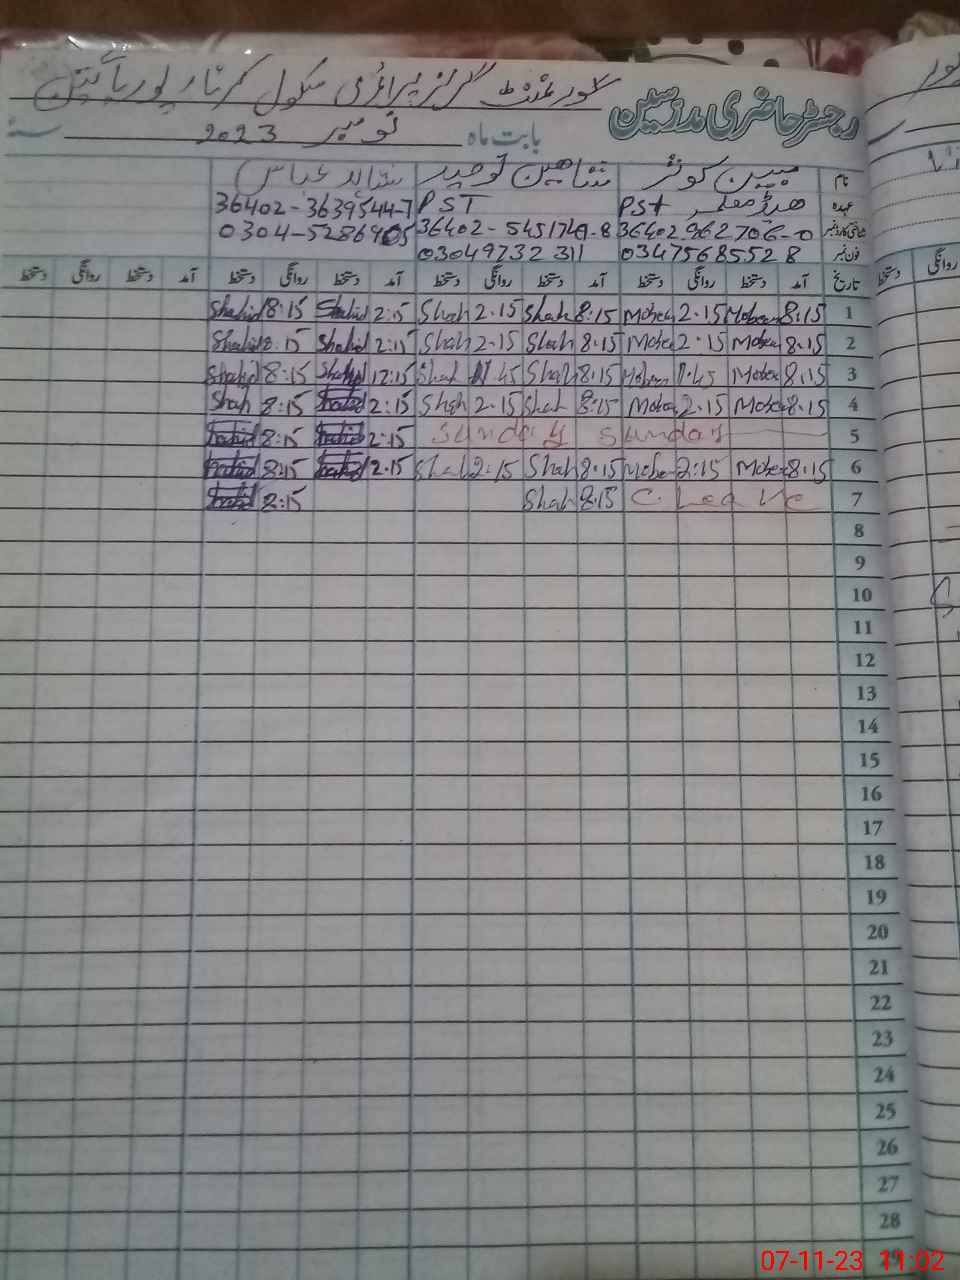 رجسٹر حاضری مدرسین گورنمنٹ گرلز پرائمری سکول کرتار پور پاکپتن
بابت ماہ نومبر 2023 سنہ
نام مبین کوثر شاہین توحید شاہد عباس
عہدہ ہیڈ معلمہ PST PST 36402-3639544-7
شناختی کارڈ نمبر 36402 962706-0 36402-5451749-8 0304-5286905
فون نمبر 03475685528 03049732311
تاریخ آمد دستخط روانگی دستخط آمد دستخط روانگی دستخط آمد دستخط روانگی دستخط آمد دستخط روانگی دستخط
Shahid 8:15 Shahid 2:15 Shah 2.15 Shah 8:15 Mobeen 2.15 Mobeen 8.15 1
Shahid 8:15 Shahid 2:15 Shah 2.15 Shah 8:15 Mobe 2.15 Mobee 8.15 2
Shahid 8:15 Shahid 12:15 Shah 11.45 Shah 8:15 Mobeen 11.45 Mobee 8.15 3
Shah 8:15 2:15 Shah 2.15 Shah 8:15 Mobee 2.15 Mobee 8.15 4
8:15 2:15 Sunday Sunday 5
8:15 2.15 Shah 2:15 Shah 8:15 Mobe 2:15 Mobee 8:15 6
8:15 Shah 8:15 C. Leave 7
8
9
10
11
12
13
14
15
16
17
18
19
20
21
22
23
24
25
26
27
28
07-11-23 11:02